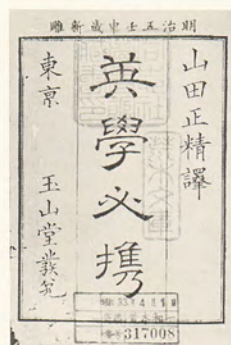 明治五壬申歳新雕
山田正精譯
英學必携
東京 玉山堂發兌
317008